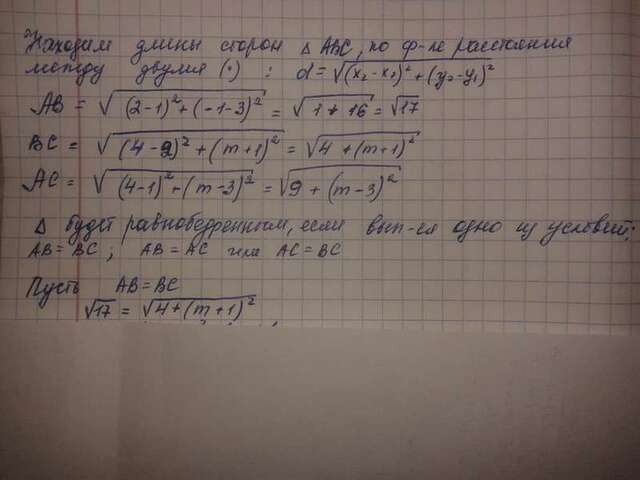 Находим длины сторон Δ ABC, по ф-ле расстояния
между двумя (·) : d = √(x₂ - x₁)² + (y₂ - y₁)²
AB = √(2-1)² + (-1-3)² = √1 + 16 = √17
BC = √(4-2)² + (m+1)² = √4 + (m+1)²
AC = √(4-1)² + (m-3)² = √9 + (m-3)²
Δ будет равнобедренным, если вып-ся одно из условий:
AB = BC ; AB = AC или AC = BC
Пусть AB = BC
√17 = √4 + (m+1)²